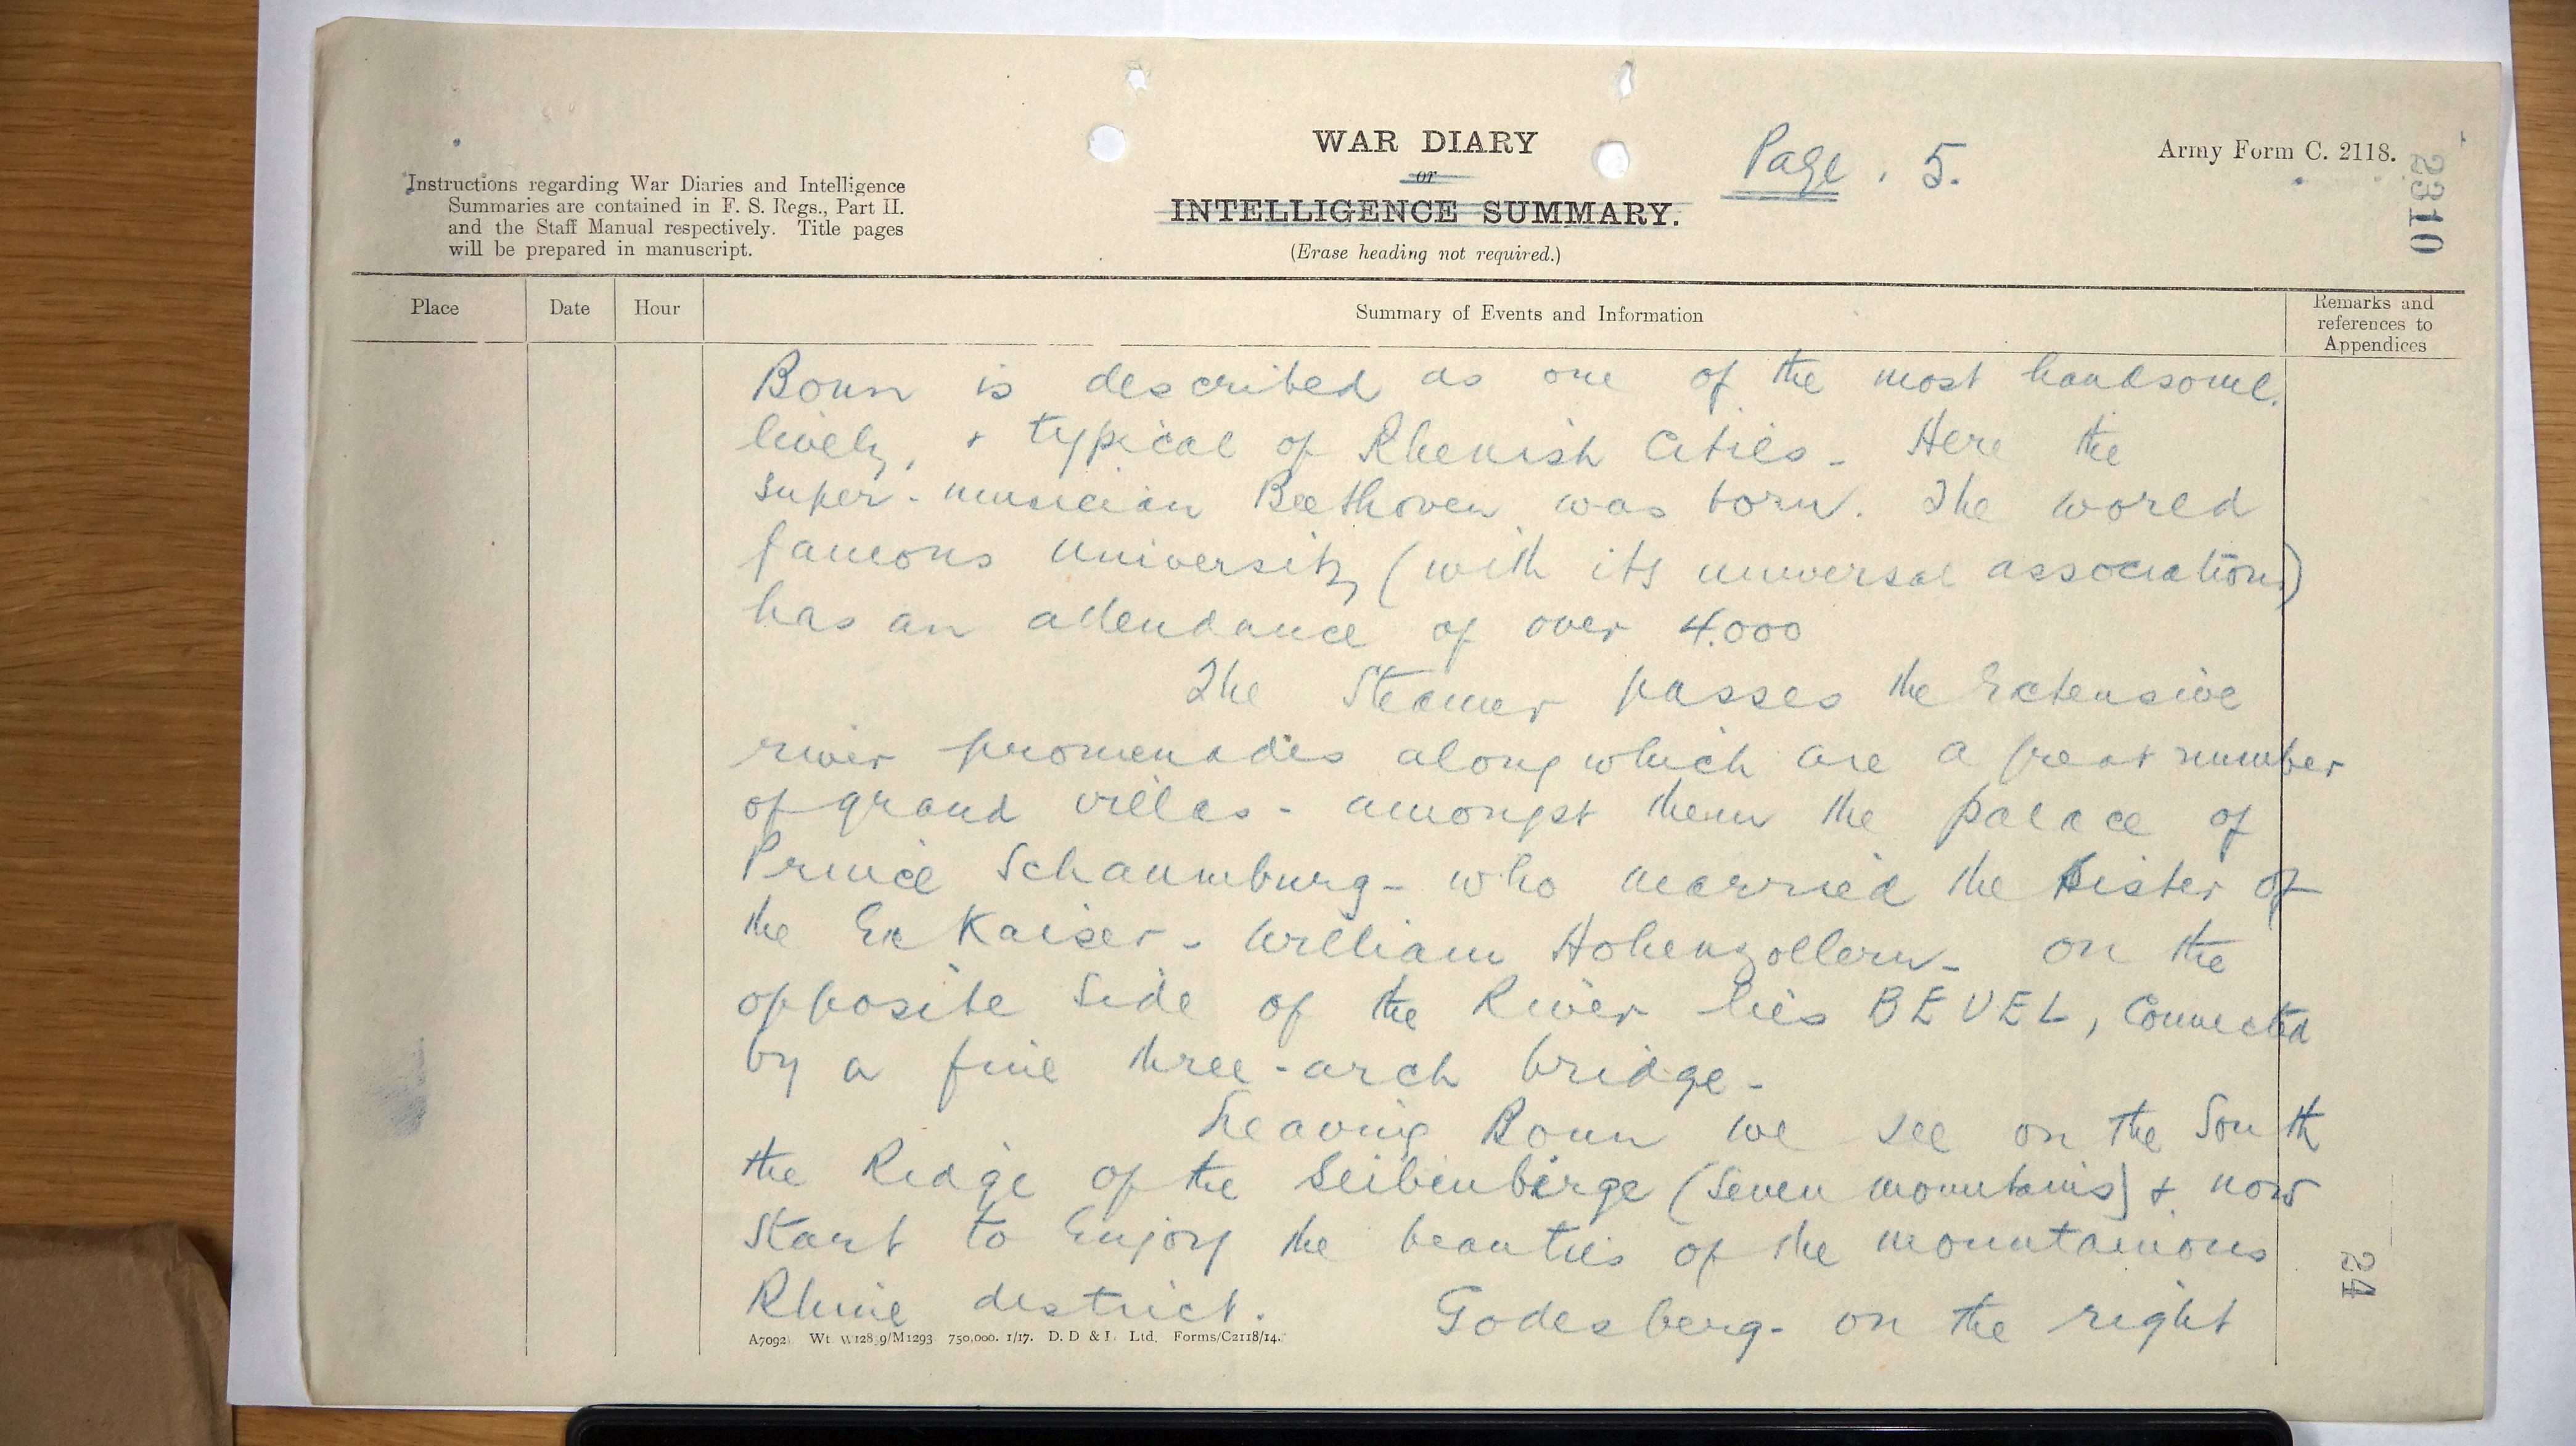 WAR DIARY
or
INTELLIGENCE SUMMARY.
(Erase heading not required.)
Page. 5.
Army Form C. 2118.
2310
Instructions regarding War Diaries and Intelligence
Summaries are contained in F. S. Regs., Part II.
and the Staff Manual respectively. Title pages
will be prepared in manuscript.
Place
Date
Hour
Summary of Events and Information
Remarks and
references to
Appendices
Bonn is described as one of the most handsome.
lively, + typical of Rhenish Cities - Here the
super-musician Beethoven was born. The world
famous university (with its universal associations)
has an attendance of over 4.000
The Steamer passes the Extensive
river promenades along which are a great number
of grand villas - amongst them the palace of
Prince Schaumburg - who married the Sister of
the Ex Kaiser - William Hohenzollern - on the
opposite Side of the River lies BEVEL, Connected
by a fine three-arch bridge -
Leaving Bonn we see on the South
the Ridge of the Seibenbirge (Seven mountains) + now
Start to Enjoy the beauties of the mountainous
Rhine district. Godesberg - on the right
24
A7092). Wt. W128 9/M1293 750,000. 1/17. D. D & L. Ltd. Forms/C2118/14.